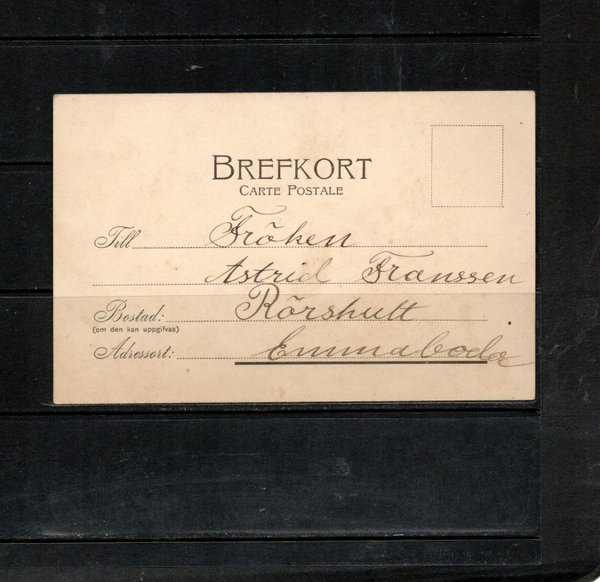 BREFKORT
CARTE POSTALE
Till Fröken
Astrid Franssen
Bostad: Rörshult
(om den kan uppgifvas)
Adressort: Emmaboda